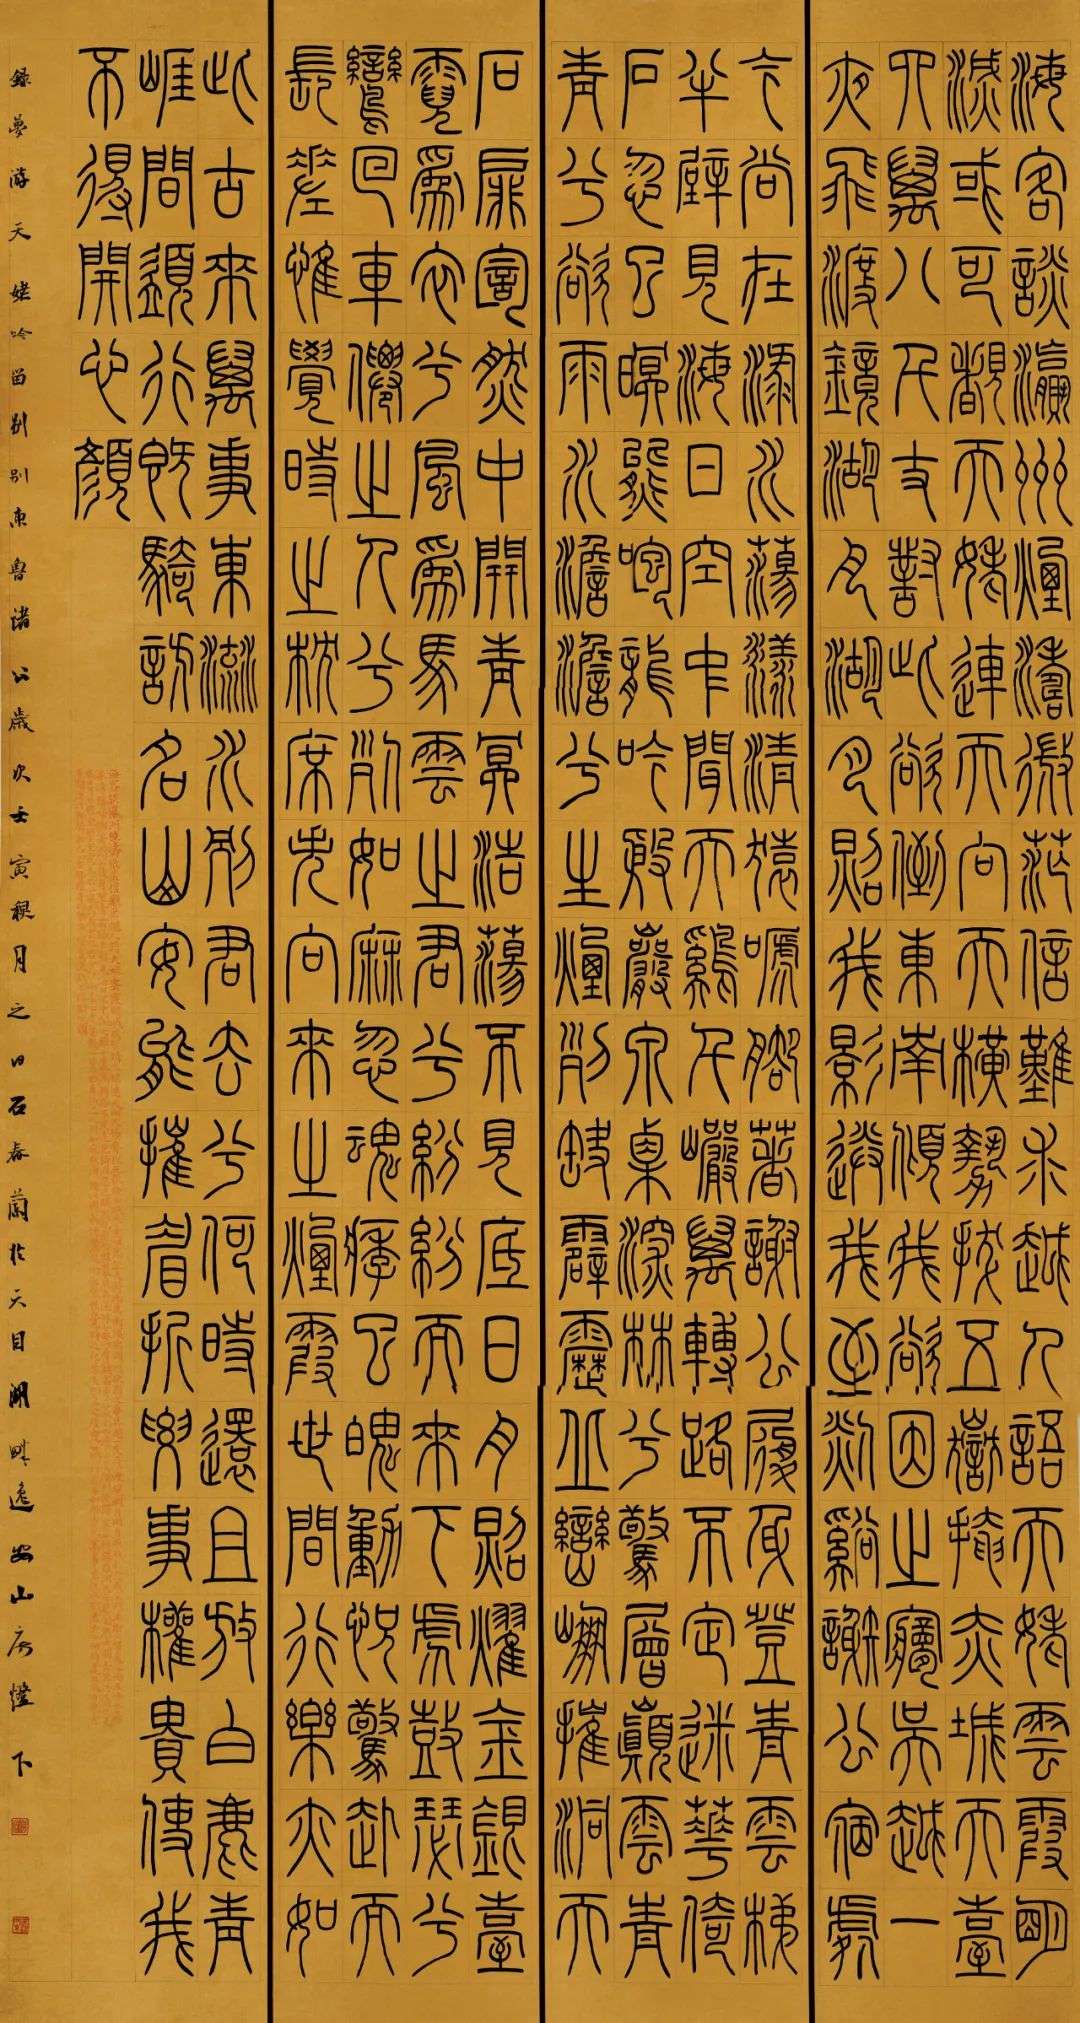 海客談瀛州煙濤微茫信難求越人語天姥雲霞明
滅或可覩天姥連天向天橫勢拔五嶽掩赤城天臺
四萬八千丈對此欲倒東南傾我欲因之夢吳越一
夜飛渡鏡湖月湖月照我影送我至剡谿謝公宿處
今尚在淥水蕩漾清猿嗁腳著謝公屐身登青雲梯
半壁見海日空中聞天雞千巖萬轉路不定迷華倚
石忽已暝熊咆龍吟殷巖泉栗深林兮驚層巔雲青
青兮欲雨水澹澹兮生煙列缺霹靂丘巒崩摧洞天
石扉訇然中開青冥浩蕩不見底日月照耀金銀臺
霓為衣兮風為馬雲之君兮紛紛而來下虎鼓瑟兮
鸞回車僊之人兮列如麻忽魂悸以魄動怳驚起而
長嗟惟覺時之枕席失向來之煙霞世間行樂亦如
此古來萬事東流水別君去兮何時還且放白鹿青
崖間須行即騎訪名山安能摧眉折腰事權貴使我
不得開心顏
錄夢游天姥吟留別別東魯諸公歲次壬寅穐月之日石春蘭於天目湖畔逸安山房燈下